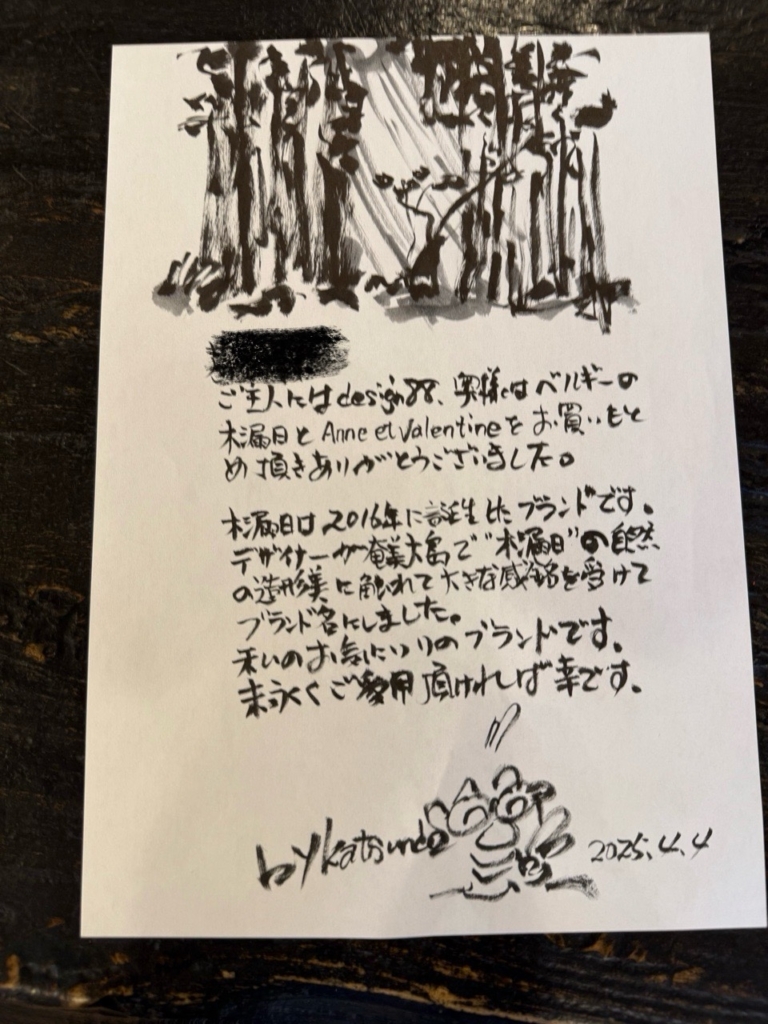 ご主人にはdesign88、奥様はベルギーの
木漏日とAnne et Valentineをお買いもと
め頂きありがとうございました。
木漏日は2016年に誕生したブランドです。
デザイナーが奄美大島で"木漏日"の自然
の造形美に触れて大きな感銘を受けて
ブランド名にしました。
私いのお気にいりのブランドです。
末永くご愛用頂ければ幸です。
by Katsundo
2025.4.4